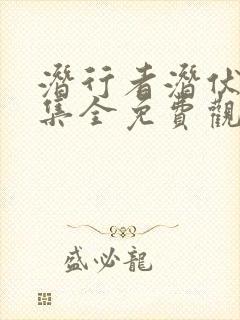 潛行者潛伏
集全免費觀
盛必龍